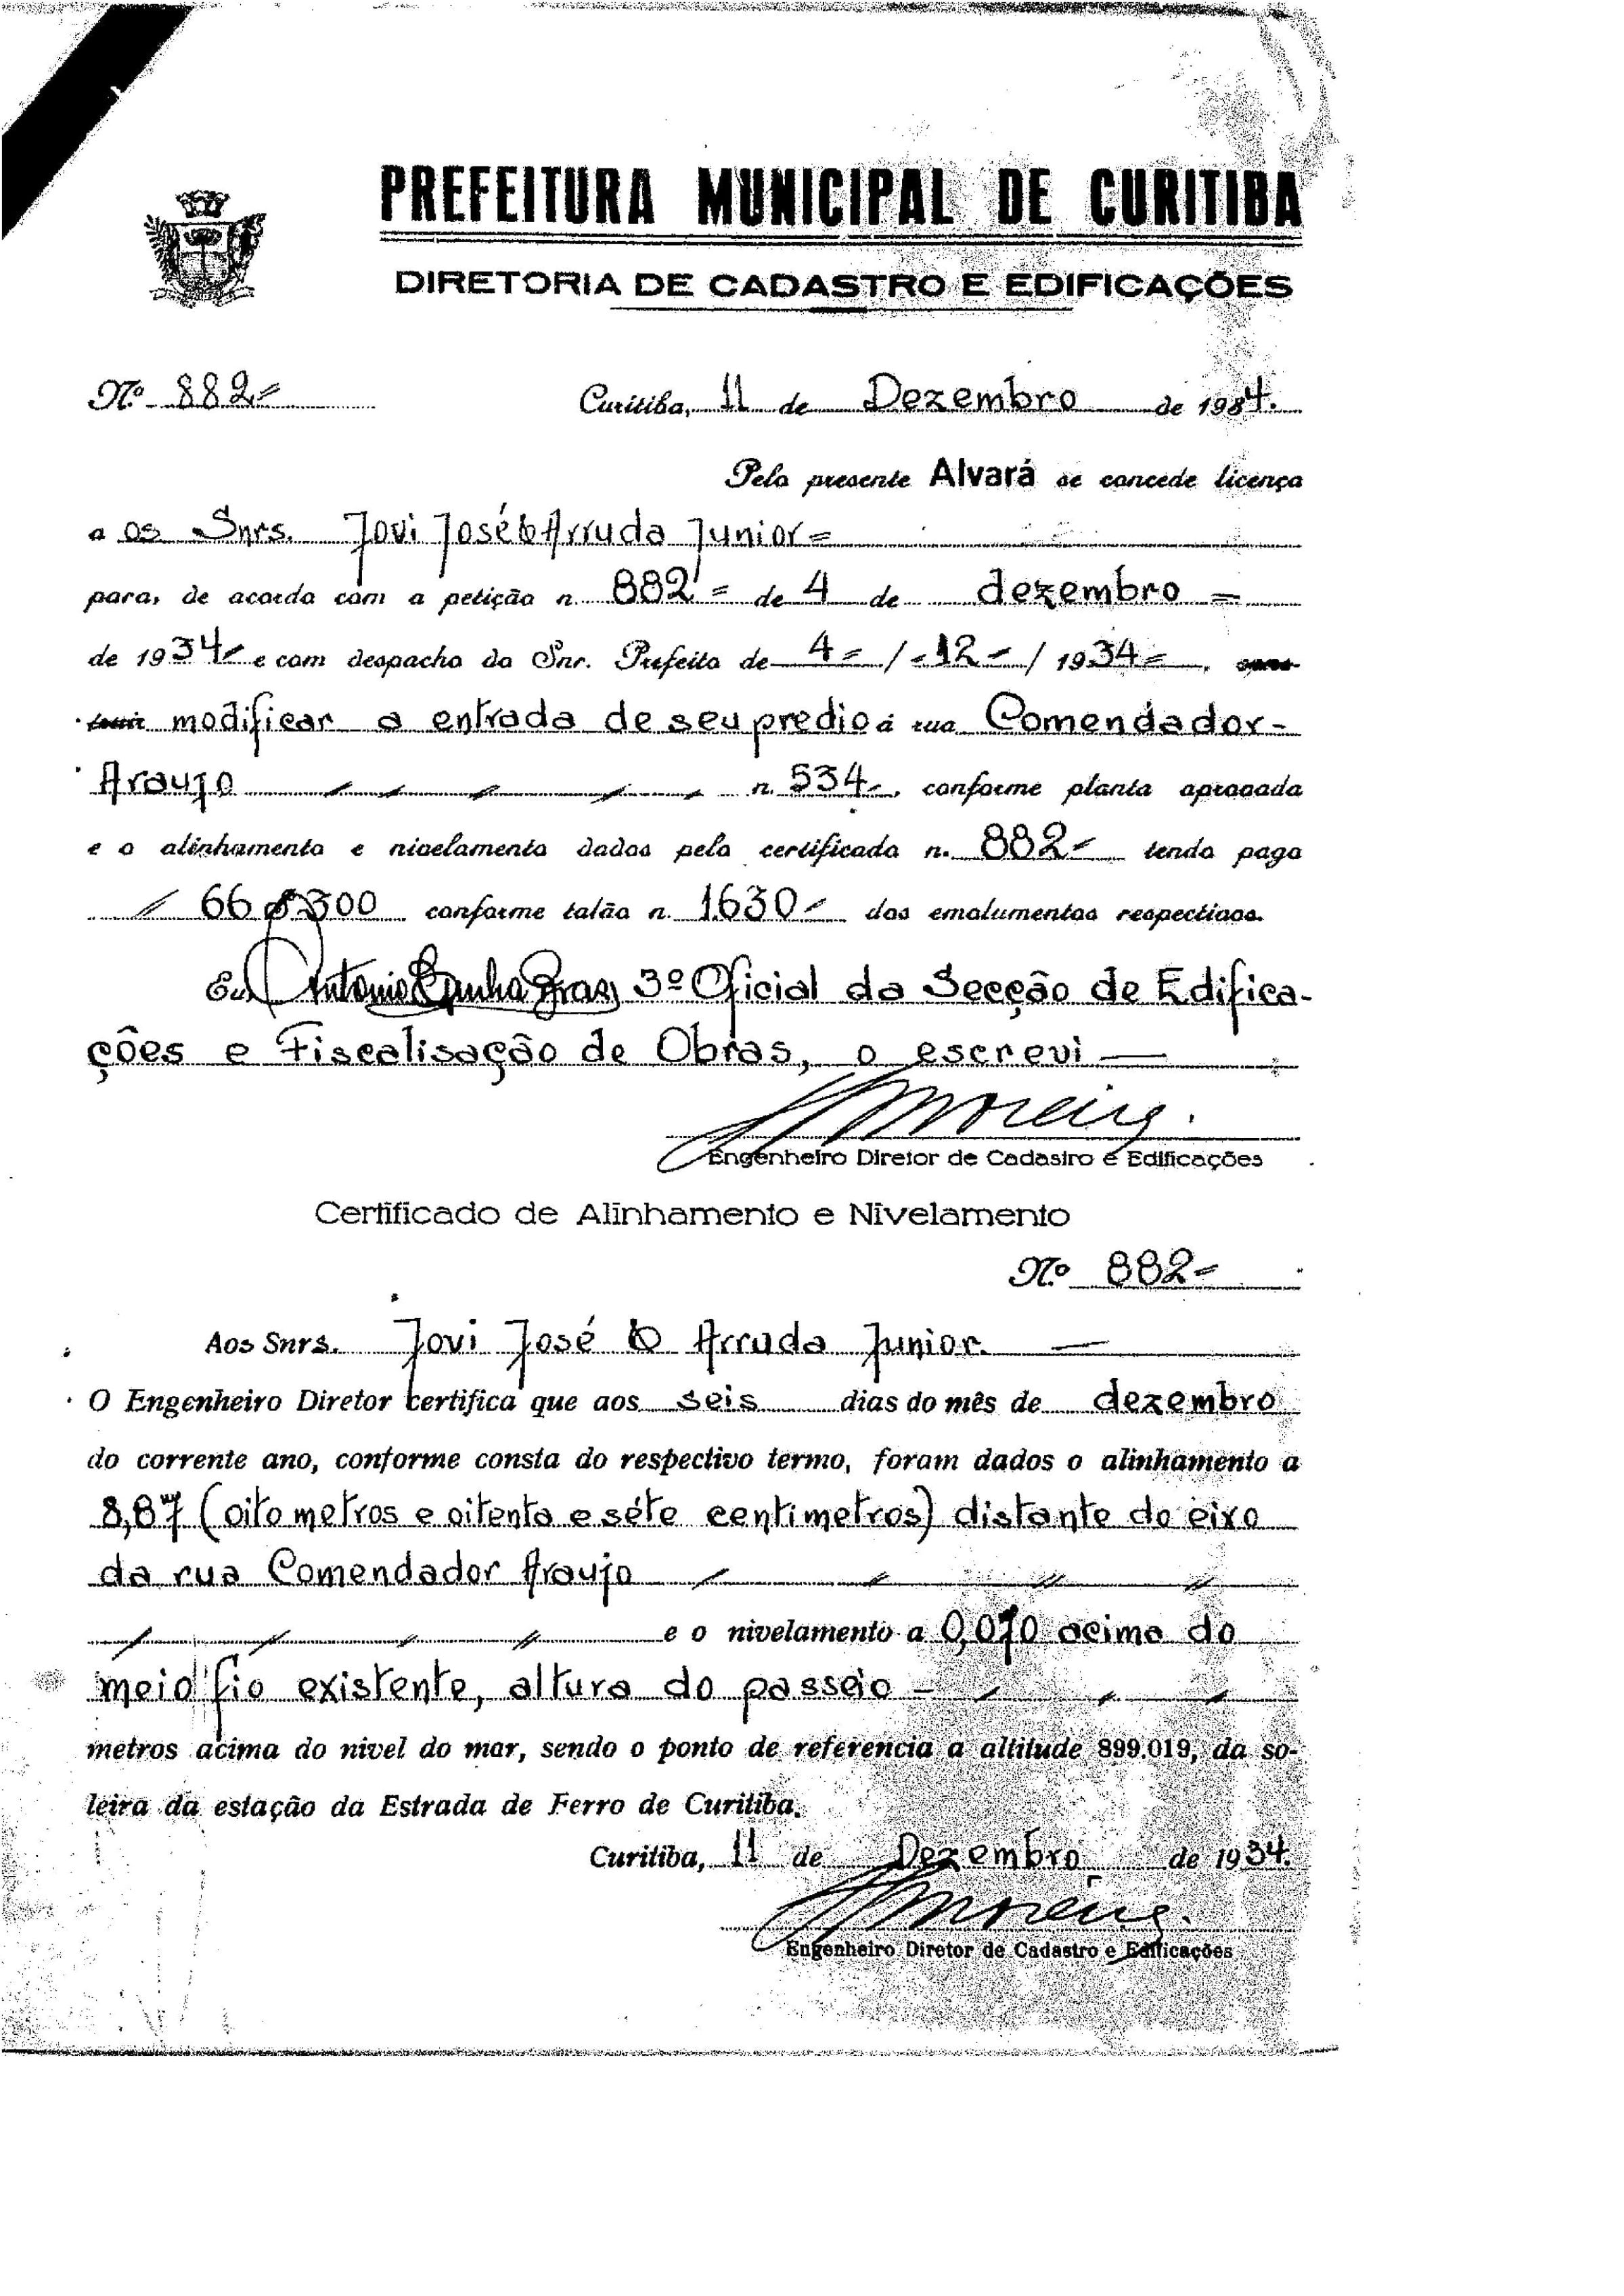 PREFEITURA MUNICIPAL DE CURITIBA
DIRETORIA DE CADASTRO E EDIFICAÇÕES
N.º 882=
Curitiba, 11 de Dezembro de 1934.
Pelo presente Alvará se concede licença
a os Snrs. Jovi José & Arruda Junior=
para, de acordo com a petição n. 882= de 4 de dezembro =
de 1934= e com despacho do Snr. Prefeito de 4= / =12= / 1934=,
modificar a entrada de seu predio á rua Comendador-
Araujo n. 534=, conforme planta aprovada
e o alinhamento e nivelamento dados pelo certificado n. 882= tendo pago
66$300 conforme talão n. 1630= dos emolumentos respectivos.
Eu, Antonio 3º Oficial da Secção de Edifica-
ções e Fiscalisação de Obras, o escrevi
Moreira.
Engenheiro Diretor de Cadastro e Edificações
Certificado de Alinhamento e Nivelamento
N.º 882=
Aos Snrs. Jovi José & Arruda Junior.
O Engenheiro Diretor certifica que aos seis dias do mês de dezembro
do corrente ano, conforme consta do respectivo termo, foram dados o alinhamento a
8,87 (oito metros e oitenta e séte centimetros) distante do eixo
da rua Comendador Araujo
e o nivelamento a 0,070 acima do
meio fio existente, altura do passeio -
metros acima do nivel do mar, sendo o ponto de referencia a altitude 899.019, da so-
leira da estação da Estrada de Ferro de Curitiba.
Curitiba, 11 de Dezembro de 1934.
Moreira.
Engenheiro Diretor de Cadastro e Edificações